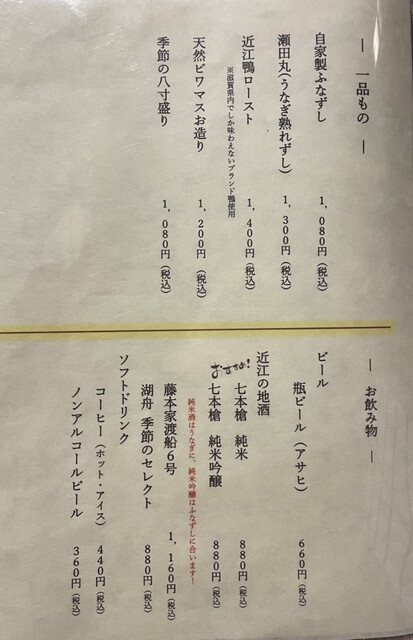 ― 一品もの ―
自家製ふなずし 1,080円(税込)
瀬田丸(うなぎ熟れずし) 1,300円(税込)
近江鴨ロースト 1,400円(税込)
※滋賀県内でしか味わえないブランド鴨使用
天然ビワマスお造り 1,200円(税込)
季節の八寸盛り 1,080円(税込)
― お飲み物 ―
ビール
瓶ビール(アサヒ) 660円(税込)
近江の地酒
七本槍 純米 880円(税込)
おすすめ!
七本槍 純米吟醸 880円(税込)
純米酒はうなぎに、純米吟醸はふなずしに合います!
藤本家渡船6号 1,160円(税込)
湖舟 季節のセレクト 880円(税込)
ソフトドリンク
コーヒー(ホット・アイス) 440円(税込)
ノンアルコールビール 360円(税込)